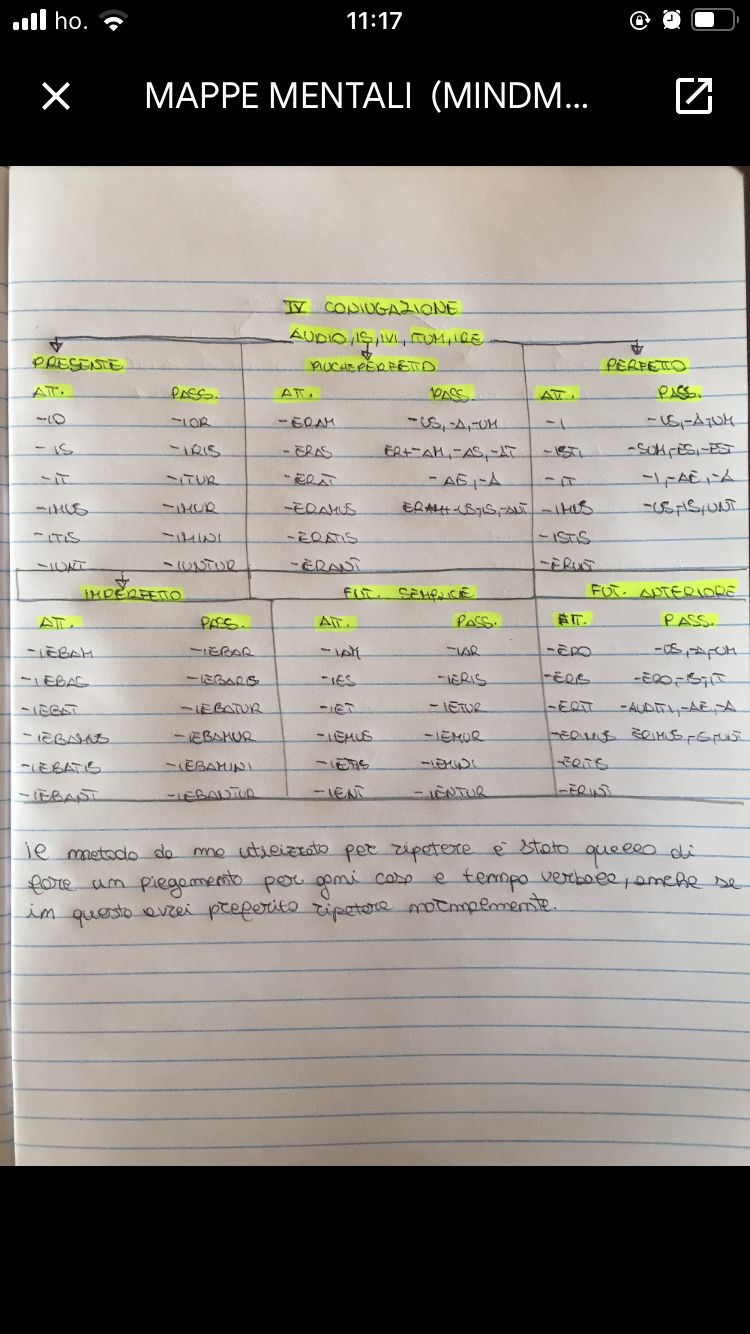 ho. 11:17
MAPPE MENTALI (MINDM...
IV CONIUGAZIONE
AUDIO, IS, IVI, ITUM, IRE
PRESENTE PIUCHEPERFETTO PERFETTO
ATT. PASS. ATT. PASS. ATT. PASS.
-IO -IOR -ERAM -US, -A, -UM -I -US, -A, -UM
-IS -IRIS -ERAS ER+-AM, -AS, -AT -ISTI -SUM, -ES, -EST
-IT -ITUR -ERAT -AE, -A -IT -I, -AE, -A
-IMUS -IMUR -ERAMUS -IMUS
-ITIS -IMINI -ERATIS -ISTIS
-IUNT -IUNTUR -ERANT -ERUNT
IMPERFETTO FUT. SEMPLICE FUT. ANTERIORE
ATT. PASS. ATT. PASS. ATT. PASS.
-IEBAM -IEBAR -IAM -IAR -ERO -US, -A, -UM
-IEBAS -IEBARIS -IES -IERIS -ERIS -ERO, -IS, -IT
-IEBAT -IEBATUR -IET -IETUR -ERIT -AUDITI, -AE, -A
-IEBAMUS -IEBAMUR -IEMUS -IEMUR -ERIMUS
-IEBATIS -IEBAMINI -IETIS -IEMINI -ERITIS
-IEBANT -IEBANTUR -IENT -IENTUR -ERINT
il metodo da me utilizzato per ripetere è stato quello di
fare un piegamento per ogni caso e tempo verbale, anche se
in questo avrei preferito ripetere normalmente.